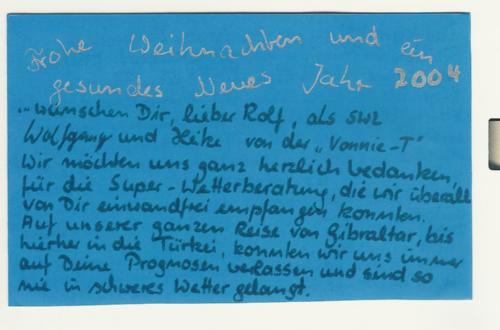 Frohe Weihnachten und ein
gesundes Neues Jahr 2004
...wünschen Dir, lieber Rolf, als SWL
Wolfgang und Heike von der „Vonnie-T"
Wir möchten uns ganz herzlich bedanken,
für die Super-Wetterberatung, die wir überall
von Dir einwandfrei empfangen konnten.
Auf unserer ganzen Reise von Gibraltar, bis
hierher in die Türkei, konnten wir uns immer
auf Deine Prognosen verlassen und sind so
nie in schweres Wetter gelangt.